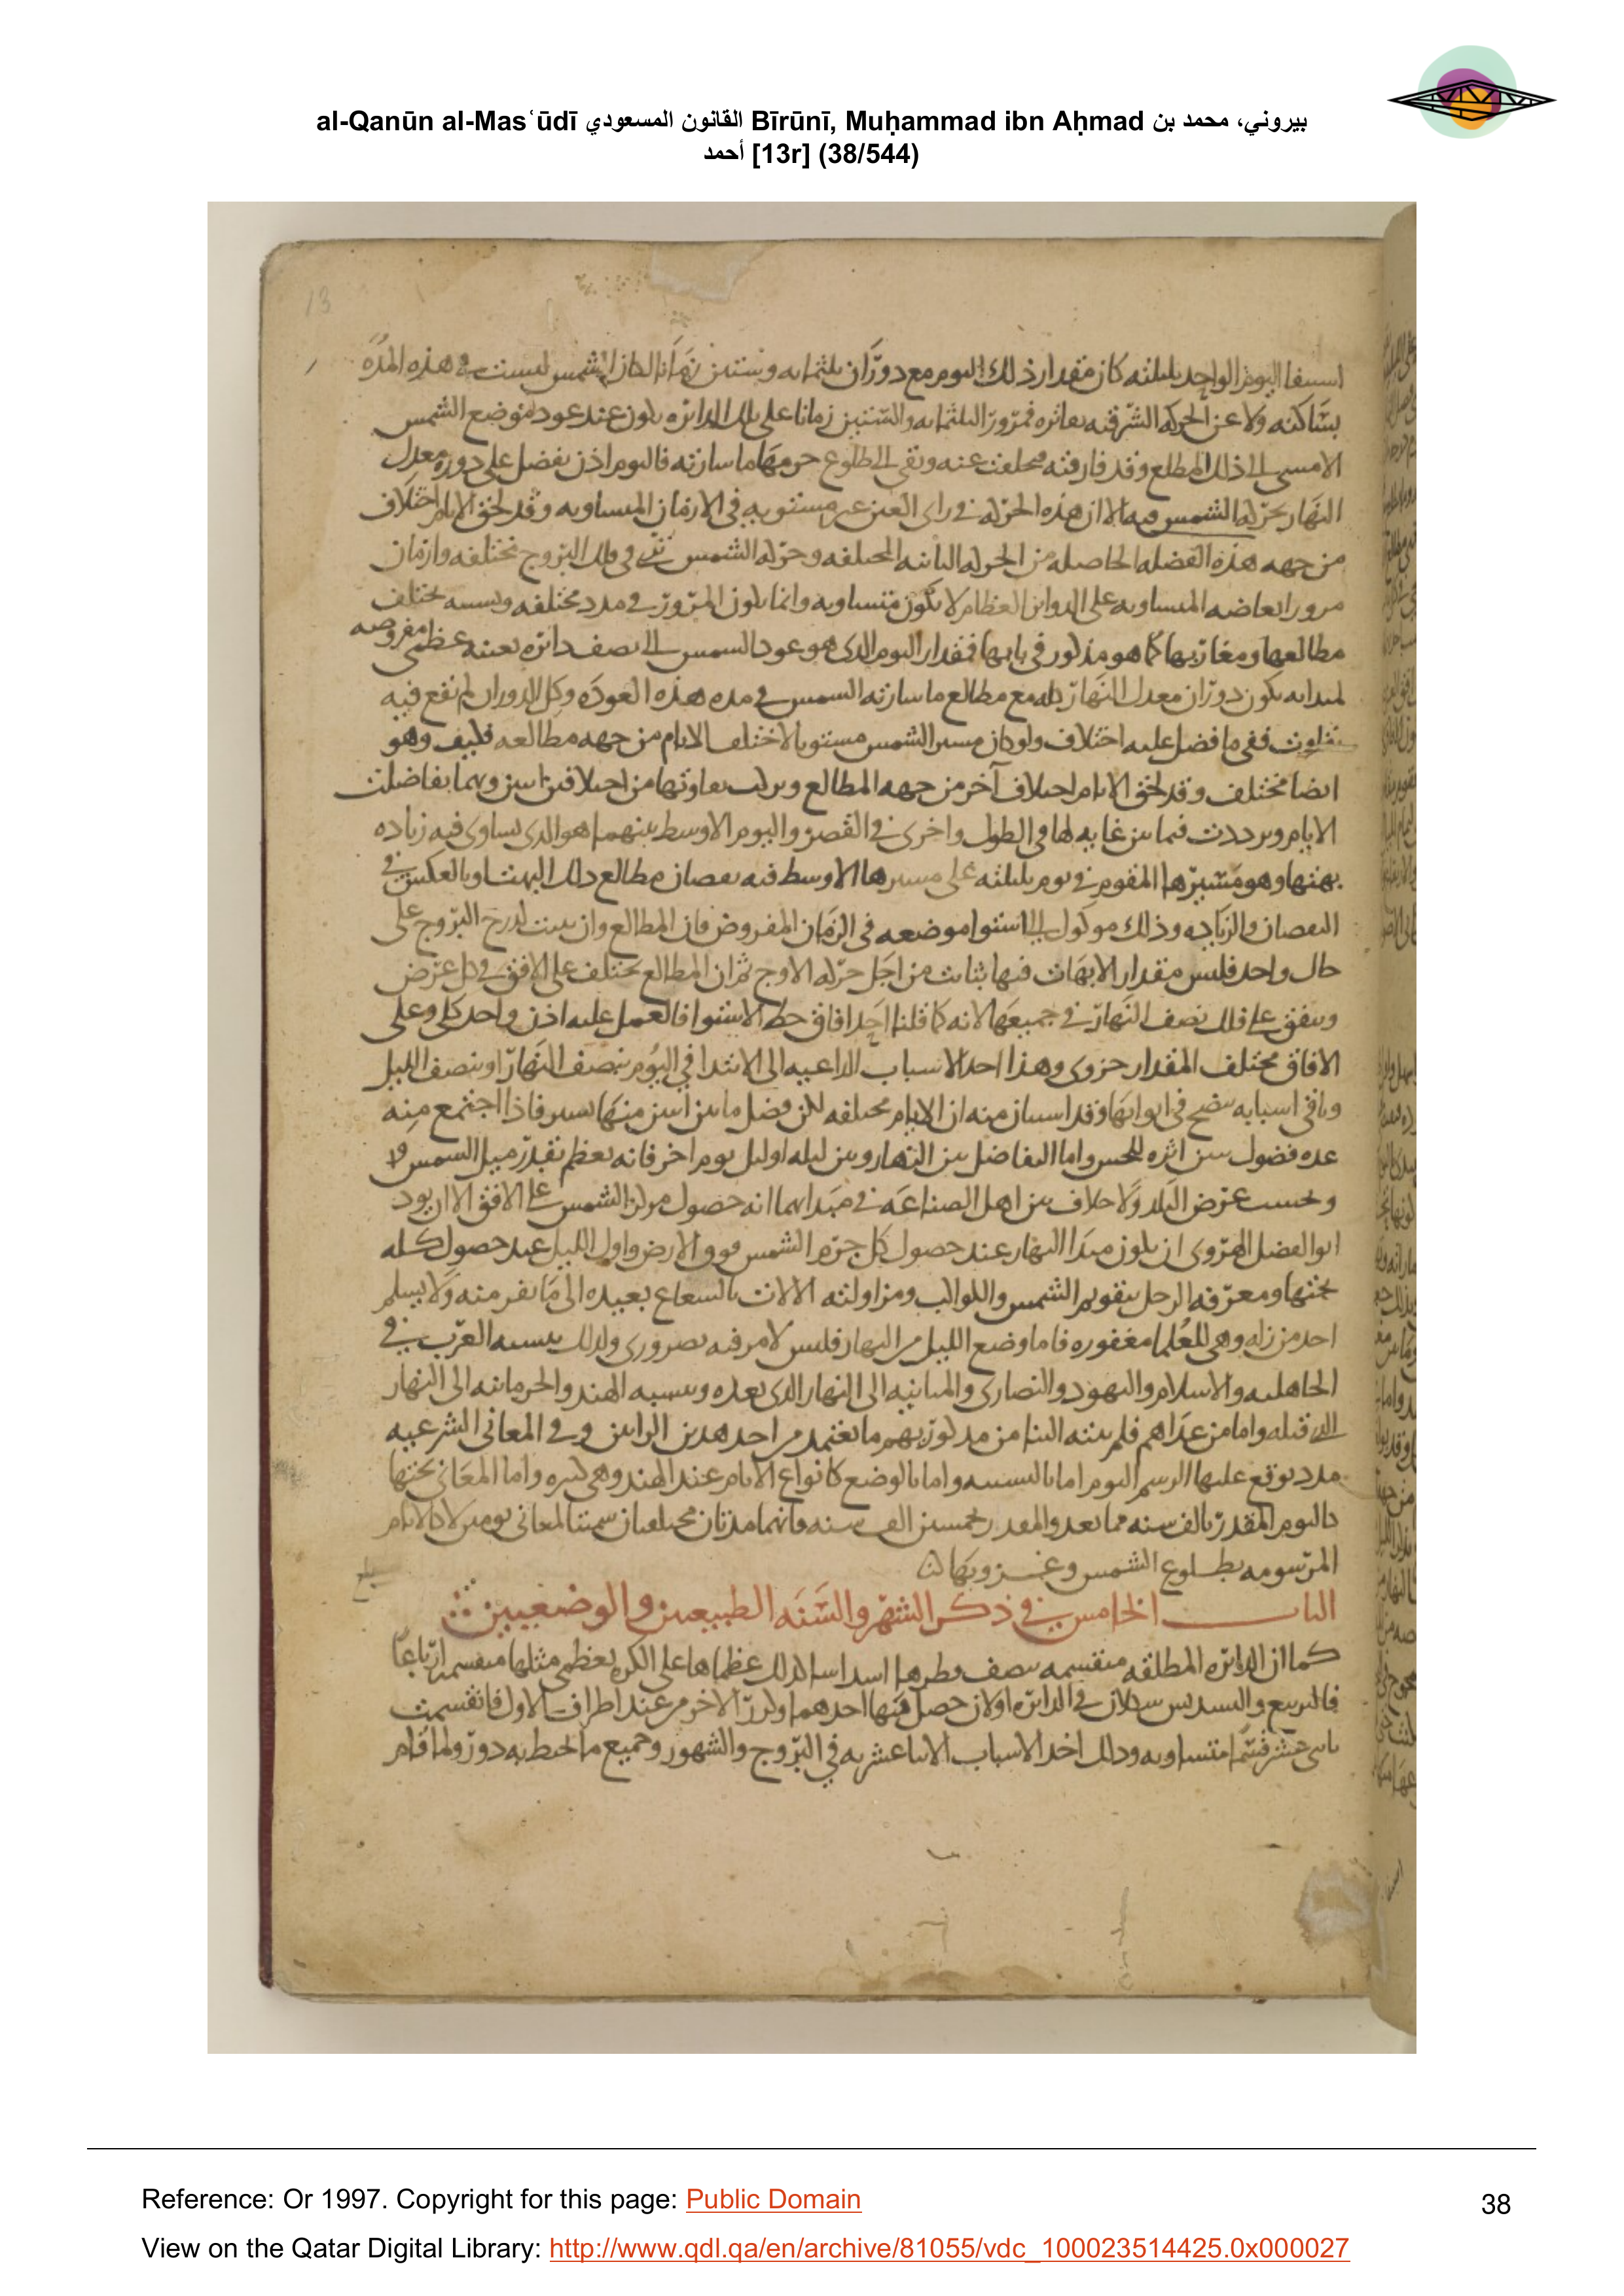 al-Qanūn al-Masʿūdī القانون المسعودي Bīrūnī, Muḥammad ibn Aḥmad بيروني، محمد بن
أحمد [13r] (38/544)
13
اليوم الواحد بليلته كان مقدار ذلك اليوم مع دوران ثلثمايه وستين زمانا الشمس ليست في هذه المدة
بساكنه ولا عن الحركه الشرقيه فمرور الثلثمايه والستين زمانا على تلك الدايره يكون عند عود موضع الشمس
الامسى الى ذلك المطلع وقد فارقته فتخلفت عنه وبقى الى طلوع جرمها ما سارته فاليوم اذن يفضل على دوره معدل
النهار بحركه الشمس فيه الا ان هذه الحركه في راى العين غير مستويه في الازمان المتساويه وقد لحق الايام اختلاف
من جهه هذه الفضله الحاصله من الحركه الثانيه المختلفه وحركه الشمس في فلك البروج مختلفه وازمان
مرور ابعاضه المتساويه على الدواير العظام لا تكون متساويه وانما يكون المرور في مدد مختلفه وبسببه تختلف
مطالعها ومغاربها كما هو مذكور في بابها فمقدار اليوم الذى هو عود الشمس الى نصف دايره بعينه عظمى مفروضه
لمبدايه يكون دوران معدل النهار كله مع مطالع ما سارته الشمس في مده هذه العوده وكل الدوران لم يقع فيه
تفاوت ففي ما فضل عليه اختلاف ولو كان مسير الشمس مستويا لاختلف الايام من جهه مطالعه فكيف وهو
ايضا مختلف وقد لحق الايام اختلاف آخر من جهه المطالع وتركب تفاوتها من اختلافين اثنين وبهما تفاضلت
الايام وترددت فيما بين غايه لها في الطول واخرى في القصر واليوم الاوسط بينهما هو الذى يساوى فيه زياده
بهتها وهو مسيرها المقوم في يوم بليلته على مسيرها الاوسط فيه نقصان مطالع ذلك البهت او بالعكس في
النقصان والزياده وذلك موكول الى استوا موضعه في الزمان المفروض فان المطالع وان بقيت لدرج البروج على
حال واحد فليس مقدار الابهات فيها بثابت من اجل حركه الاوج ثم ان المطالع تختلف على الافق في كل عرض
ويتفق على فلك نصف النهار في جميعها لانه كما قلنا احد افاق خط الاستوا فالعمل عليه اذن واحد كلى وعلى
الافاق مختلف المقدار جزوى وهذا احد الاسباب الداعيه الى الابتدا في اليوم بنصف النهار او بنصف الليل
وباقى اسبابه يتضح في ابوابها وقد استبان منه ان الايام مختلفه لكن فضل ما بين اثنين منها يسير فاذا اجتمع منه
عده فضول تبين اثره للحس واما التفاضل بين النهار وبين ليله او ليل يوم اخر فانه يعظم بقدر ميل الشمس
وبحسب عرض البلد ولا خلاف بين اهل الصناعه في مبدايهما انه حصول مركز الشمس على الافق الا ان يود
ابو الفضل الهروى ان يكون مبدا النهار عند حصول كل جرم الشمس فوق الارض واول الليل عند حصول كله
تحتها ومعرفه الرجل بتقويم الشمس واللوالب ومزاولته الالات بالشعاع بعيده الى ما نفر منه ولا يسلم
احد من زله وهي للعلما مغفوره فاما وضع الليل من النهار فليس لامر فيه ضرورى ولذلك ينسبه العرب في
الجاهليه والاسلام واليهود والنصارى والمانيه الى النهار الذى بعده وينسبه الهند والحرمانيه الى النهار
الذى قبله واما من عداهم فلم ينته الينا من مذكوريهم ما نعتمد من احد هذين الرايين وفي المعانى الشرعيه
مدد يوقع عليها اسم اليوم اما بالنسبه واما بالوضع كانواع الايام عند الهند وهى كثيره واما المعانى تحتها
كاليوم المقدر بالف سنه مما نعد والمقدر بخمسين الف سنه فانهما مدتان مختلفتان سميتا لمعانى يومين لا كالايام
المرسومه بطلوع الشمس وغروبها
الباب الخامس في ذكر الشهر والسنه الطبيعيين والوضعيين
كما ان الدايره المطلقه منقسمه بنصف قطرها اسداسا كذلك عظماها على الكره بعظمى مثلها منقسمه ارباعا
فالتربيع والتسديس شكلان في الدايره اولان حصل فيها احدهما وكرر الاخر من عند اطراف الاول فانقسمت
باثنى عشر قسما متساويه وذلك احد الاسباب الاثنا عشريه في البروج والشهور وجميع ما يحيط به دور ولما قام
Reference: Or 1997. Copyright for this page: Public Domain
38
View on the Qatar Digital Library: http://www.qdl.qa/en/archive/81055/vdc_100023514425.0x000027